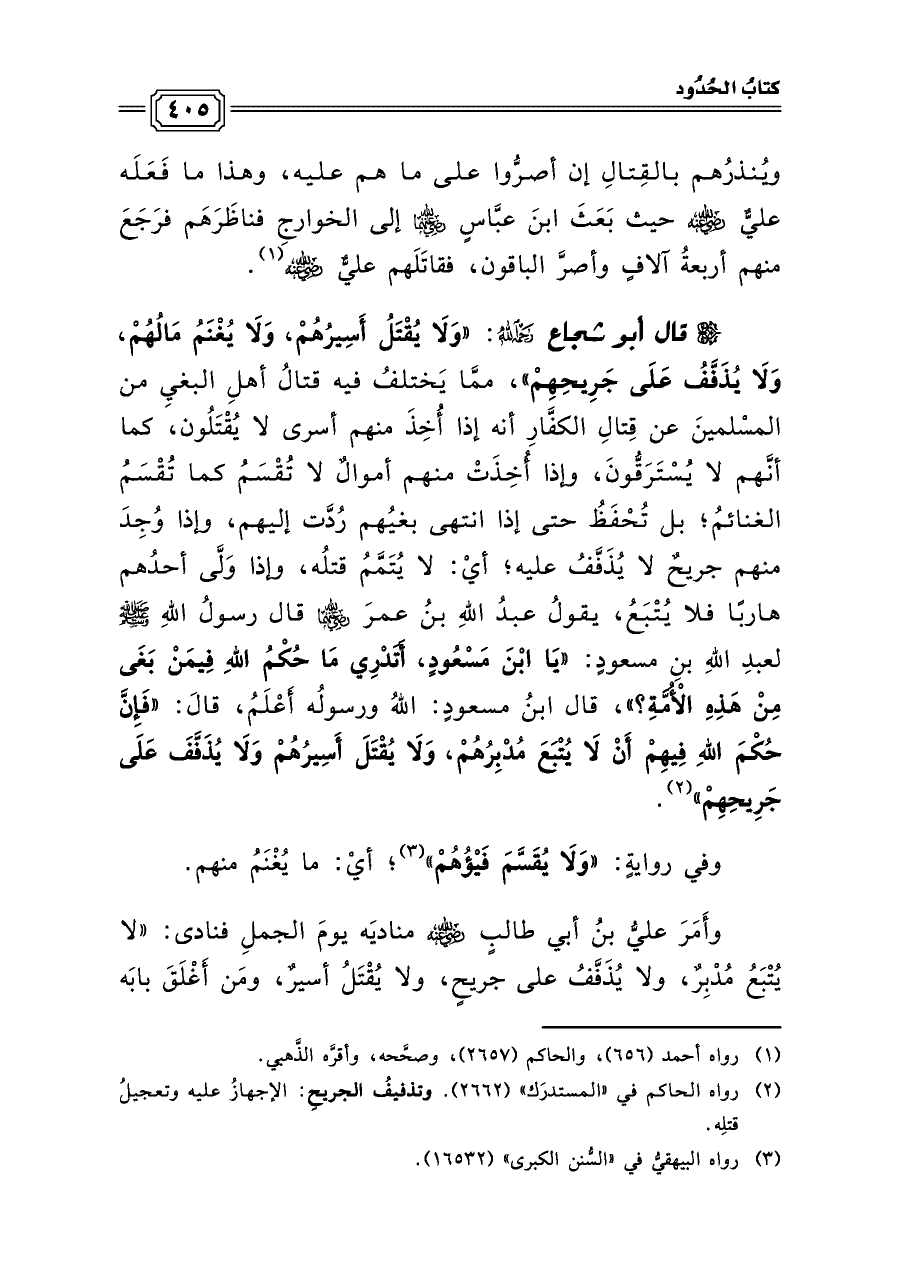 كتابُ الحُدُود
٤٠٥
ويُنذرُهم بالقِتالِ إن أصرُّوا على ما هم عليه، وهذا ما فَعَلَه
عليٌّ رضي الله عنه حيث بَعَثَ ابنَ عبَّاسٍ رضي الله عنهما إلى الخوارجِ فناظَرَهَم فرَجَعَ
منهم أربعةُ آلافٍ وأصرَّ الباقون، فقاتَلَهم عليٌّ رضي الله عنه(١).
قال أبو شجاع رحمه الله: «وَلَا يُقْتَلُ أَسِيرُهُمْ، وَلَا يُغْنَمُ مَالُهُمْ،
وَلَا يُذَفَّفُ عَلَى جَرِيحِهِمْ»، ممَّا يَختلفُ فيه قتالُ أهلِ البغيِ من
المسْلمينَ عن قِتالِ الكفَّارِ أنه إذا أُخِذَ منهم أسرى لا يُقْتَلُون، كما
أنَّهم لا يُسْتَرَقُّونَ، وإذا أُخِذَتْ منهم أموالٌ لا تُقْسَمُ كما تُقْسَمُ
الغنائمُ؛ بل تُحْفَظُ حتى إذا انتهى بغيُهم رُدَّت إليهم، وإذا وُجِدَ
منهم جريحٌ لا يُذَفَّفُ عليه؛ أيْ: لا يُتَمَّمُ قتلُه، وإذا وَلَّى أحدُهم
هاربًا فلا يُتْبَعُ، يقولُ عبدُ اللهِ بنُ عمرَ رضي الله عنهما قال رسولُ اللهِ ﷺ
لعبدِ اللهِ بنِ مسعودٍ: «يَا ابْنَ مَسْعُودٍ، أَتَدْرِي مَا حُكْمُ اللهِ فِيمَنْ بَغَى
مِنْ هَذِهِ الْأُمَّةِ؟»، قال ابنُ مسعودٍ: اللهُ ورسولُه أَعْلَمُ، قالَ: «فَإِنَّ
حُكْمَ اللهِ فِيهِمْ أَنْ لَا يُتْبَعَ مُدْبِرُهُمْ، وَلَا يُقْتَلَ أَسِيرُهُمْ وَلَا يُذَفَّفَ عَلَى
جَرِيحِهِمْ»(٢).
وفي روايةٍ: «وَلَا يُقَسَّمَ فَيْؤُهُمْ»(٣)؛ أيْ: ما يُغْنَمُ منهم.
وأَمَرَ عليُّ بنُ أبي طالبٍ رضي الله عنه مناديَه يومَ الجملِ فنادى: «لا
يُتْبَعُ مُدْبِرٌ، ولا يُذَفَّفُ على جريحٍ، ولا يُقْتَلُ أسيرٌ، ومَن أَغْلَقَ بابَه
(١) رواه أحمد (٦٥٦)، والحاكم (٢٦٥٧)، وصحَّحه، وأقرَّه الذَّهبي.
(٢) رواه الحاكم في «المستدرَك» (٢٦٦٢). وتذفيفُ الجريحِ: الإجهازُ عليه وتعجيلُ
قتلِه.
(٣) رواه البيهقيُّ في «السُّنن الكبرى» (١٦٥٣٢).